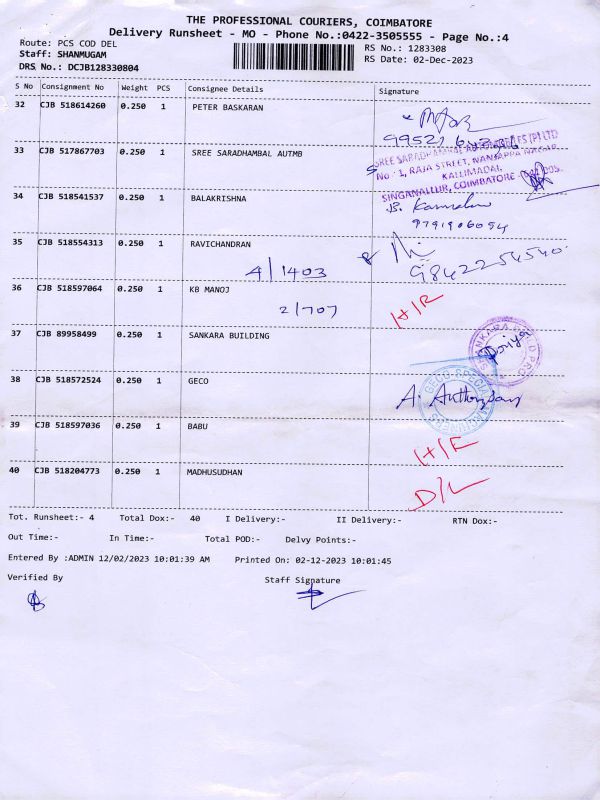 THE PROFESSIONAL COURIERS, COIMBATORE
Delivery Runsheet - MO - Phone No.:0422-3505555 - Page No.:4
Route: PCS COD DEL
RS No.: 1283308
Staff: SHANMUGAM
RS Date: 02-Dec-2023
DRS No.: DCJB128330804
S No Consignment No Weight PCS Consignee Details Signature
32 CJB 518614260 0.250 1 PETER BASKARAN
33 CJB 517867703 0.250 1 SREE SARADHAMBAL AUTMB
SREE SARADHAMBAL (P) LTD
No : 1, RAJA STREET, NANJAPPA NAGAR,
KALLIMADAI,
SINGANALLUR, COIMBATORE
34 CJB 518541537 0.250 1 BALAKRISHNA
9791906054
35 CJB 518554313 0.250 1 RAVICHANDRAN
9842254540
4/1403
36 CJB 518597064 0.250 1 KB MANOJ
2/707
37 CJB 89958499 0.250 1 SANKARA BUILDING
38 CJB 518572524 0.250 1 GECO
GECO SPECIAL
39 CJB 518597036 0.250 1 BABU
40 CJB 518204773 0.250 1 MADHUSUDHAN
D/L
Tot. Runsheet:- 4 Total Dox:- 40 I Delivery:- II Delivery:- RTN Dox:-
Out Time:- In Time:- Total POD:- Delvy Points:-
Entered By :ADMIN 12/02/2023 10:01:39 AM Printed On: 02-12-2023 10:01:45
Verified By Staff Signature